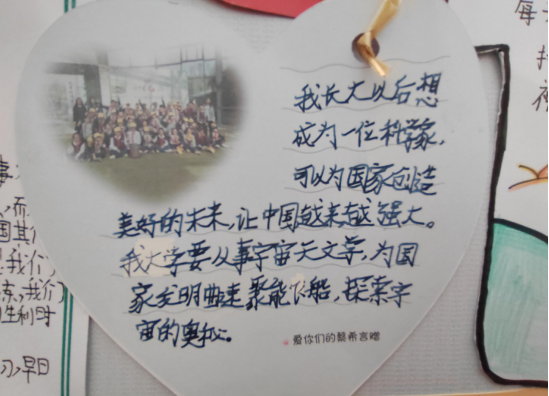 我长大以后想
成为一位科学家,
可以为国家创造
美好的未来,让中国越来越强大。
我大学要从事宇宙天文学,为国
家发明曲速聚能飞船,探索宇
宙的奥秘。
爱你们的 希言赠
事
,而
国其
我们
,我们
生利时
习,早日
每